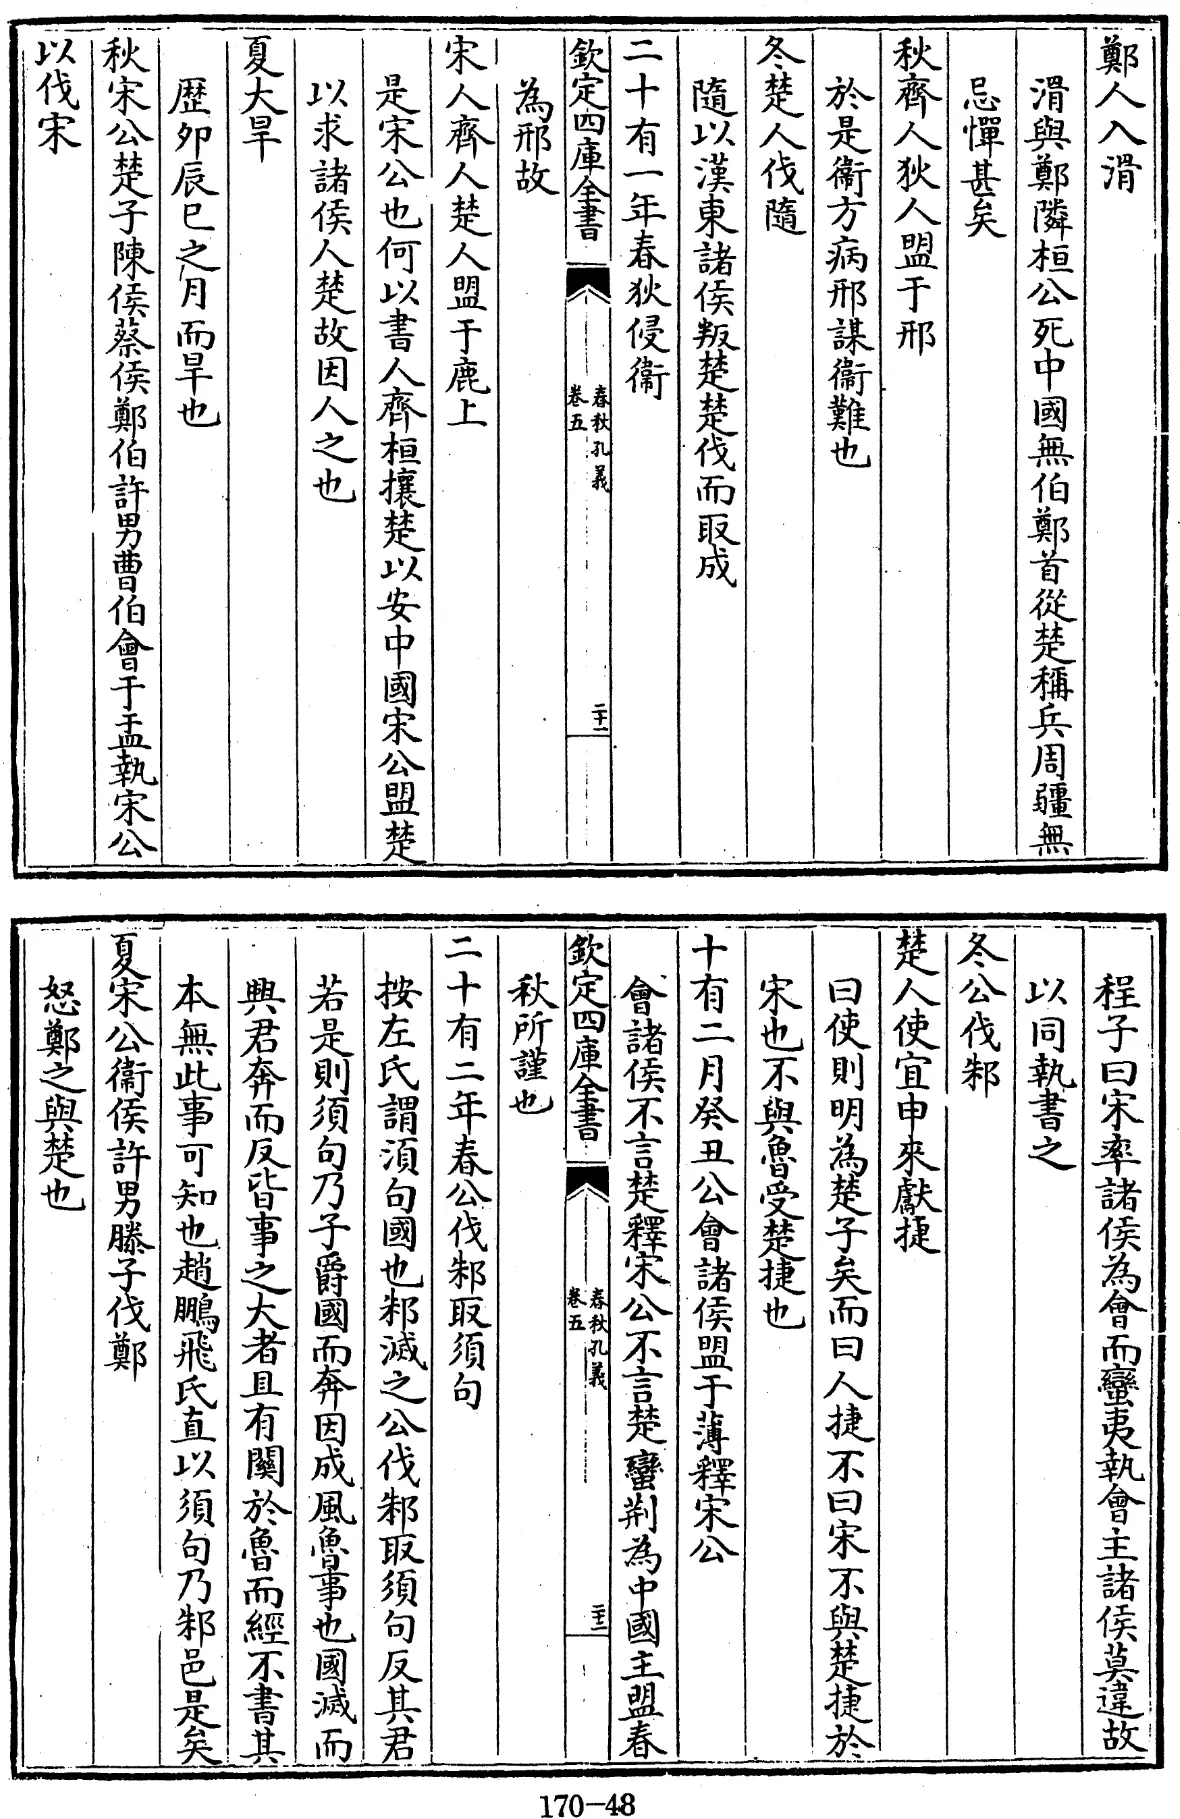 鄭人入滑
滑與鄭隣桓公死中國無伯鄭首從楚稱兵周疆無
忌憚甚矣
秋齊人狄人盟于邢
於是衛方病邢謀衛難也
冬楚人伐隨
隨以漢東諸侯叛楚楚伐而取成
二十有一年春狄侵衛
欽定四庫全書
春秋孔義
卷五
二十一
為邢故
宋人齊人楚人盟于鹿上
是宋公也何以書人齊桓攘楚以安中國宋公盟楚
以求諸侯人楚故因人之也
夏大旱
歴夘辰巳之月而旱也
秋宋公楚子陳侯蔡侯鄭伯許男曹伯會于盂執宋公
以伐宋
程子曰宋率諸侯為會而蠻夷執會主諸侯莫違故
以同執書之
冬公伐邾
楚人使宜申來獻捷
曰使則明為楚子矣而曰人捷不曰宋不與楚捷於
宋也不與魯受楚捷也
十有二月癸丑公會諸侯盟于薄釋宋公
會諸侯不言楚釋宋公不言楚蠻荆為中國主盟春
欽定四庫全書
春秋孔義
卷五
二十二
秋所謹也
二十有二年春公伐邾取須句
按左氏謂須句國也邾滅之公伐邾取須句反其君
若是則須句乃子爵國而奔因成風魯事也國滅而
興君奔而反皆事之大者且有關於魯而經不書其
本無此事可知也趙鵬飛氏直以須句乃邾邑是矣
夏宋公衛侯許男滕子伐鄭
怒鄭之與楚也
170-48